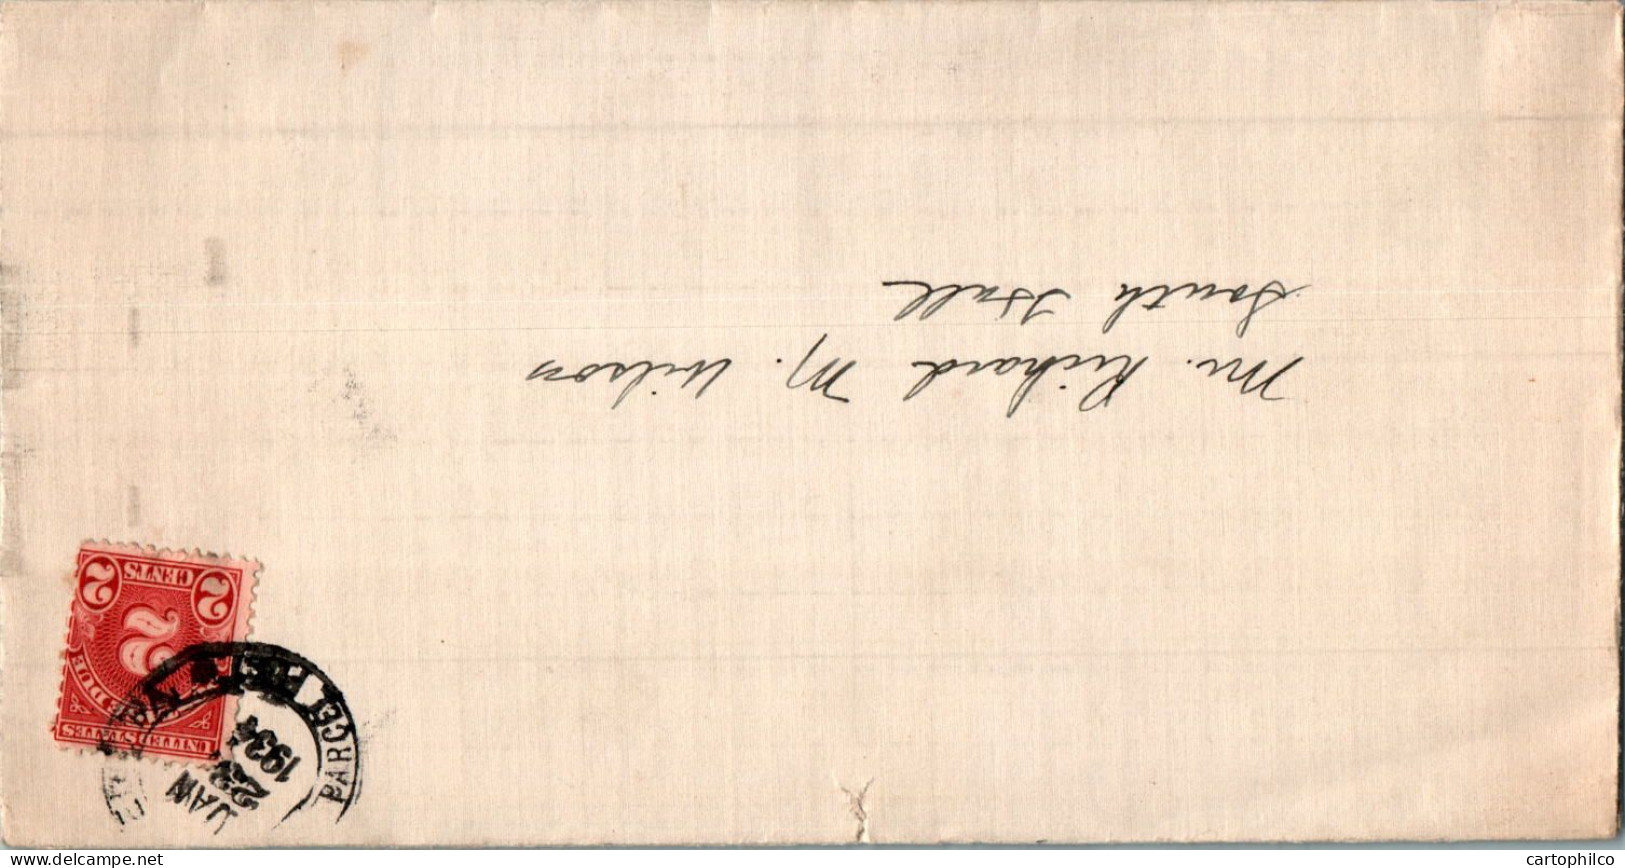 Mr. Richard M. Wilson
South Hall
UNITED STATES
DUE
2
2 CENTS 2
PARCEL POST
JAN
22
1934
cartophilco
delcampe.net